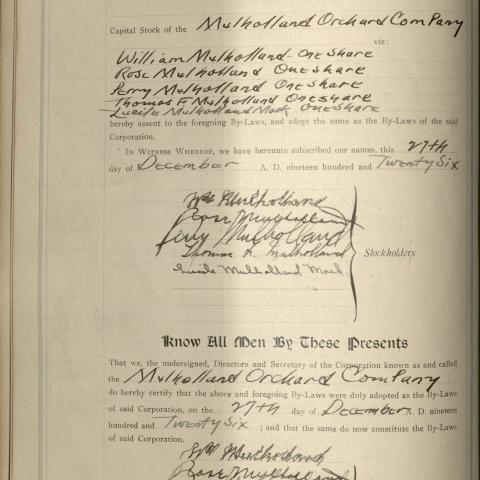 Capital Stock of the Mulholland Orchard Company
viz:
William Mulholland One Share
Rose Mulholland One Share
Perry Mulholland One Share
Thomas F Mulholland One Share
Lucile Mulholland Mack One Share
hereby assent to the foregoing By-Laws, and adopt the same as the By-Laws of the said
Corporation.
In Witness Whereof, we have hereunto subscribed our names, this 27th
day of December A. D. nineteen hundred and Twenty Six
Wm Mulholland
Rose Mulholland
Perry Mulholland
Thomas F. Mulholland
Lucile Mulholland Mack
Stockholders
Know All Men By These Presents
That we, the undersigned, Directors and Secretary of the Corporation known as and called
the Mulholland Orchard Company
do hereby certify that the above and foregoing By-Laws were duly adopted as the By-Laws
of said Corporation, on the 27th day of December A. D. nineteen
hundred and Twenty Six ; and that the same do now constitute the By-Laws
of said Corporation.
Wm Mulholland
Rose Mulholland